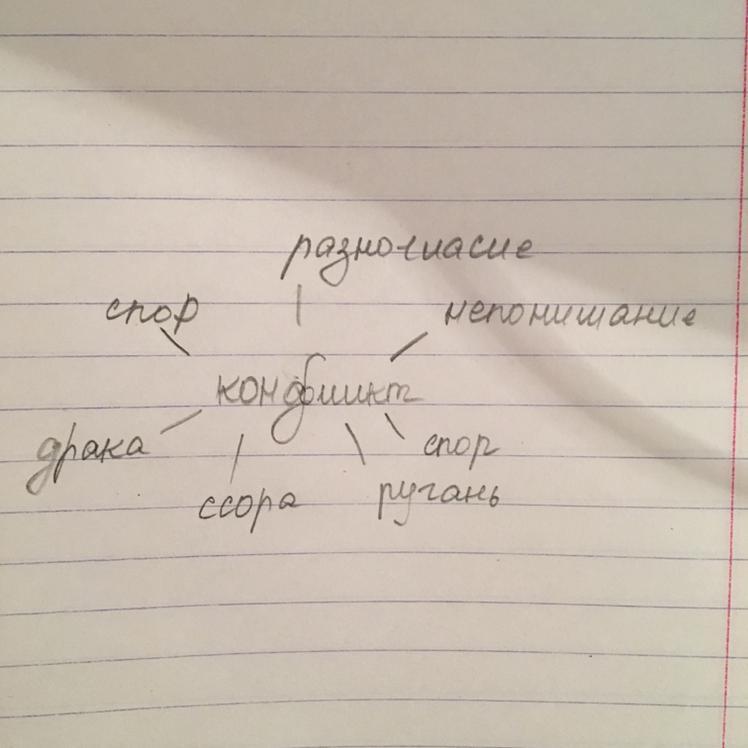 разногласие
спор
непонимание
конфликт
драка
спор
ссора
ругань